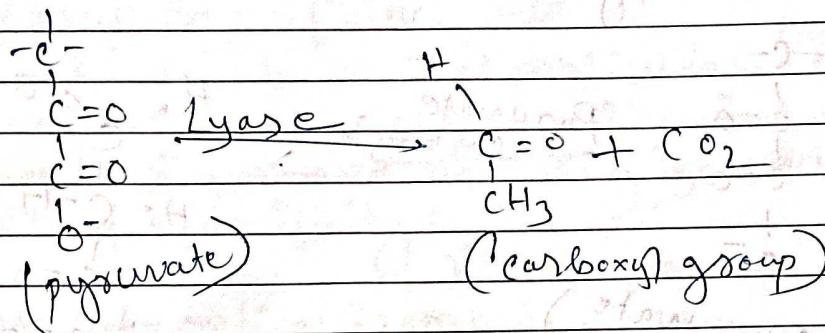 -C-
C=O
C=O
O-
(pyruvate)
Lyase
H
C=O + CO2
CH3
(carboxyl group)